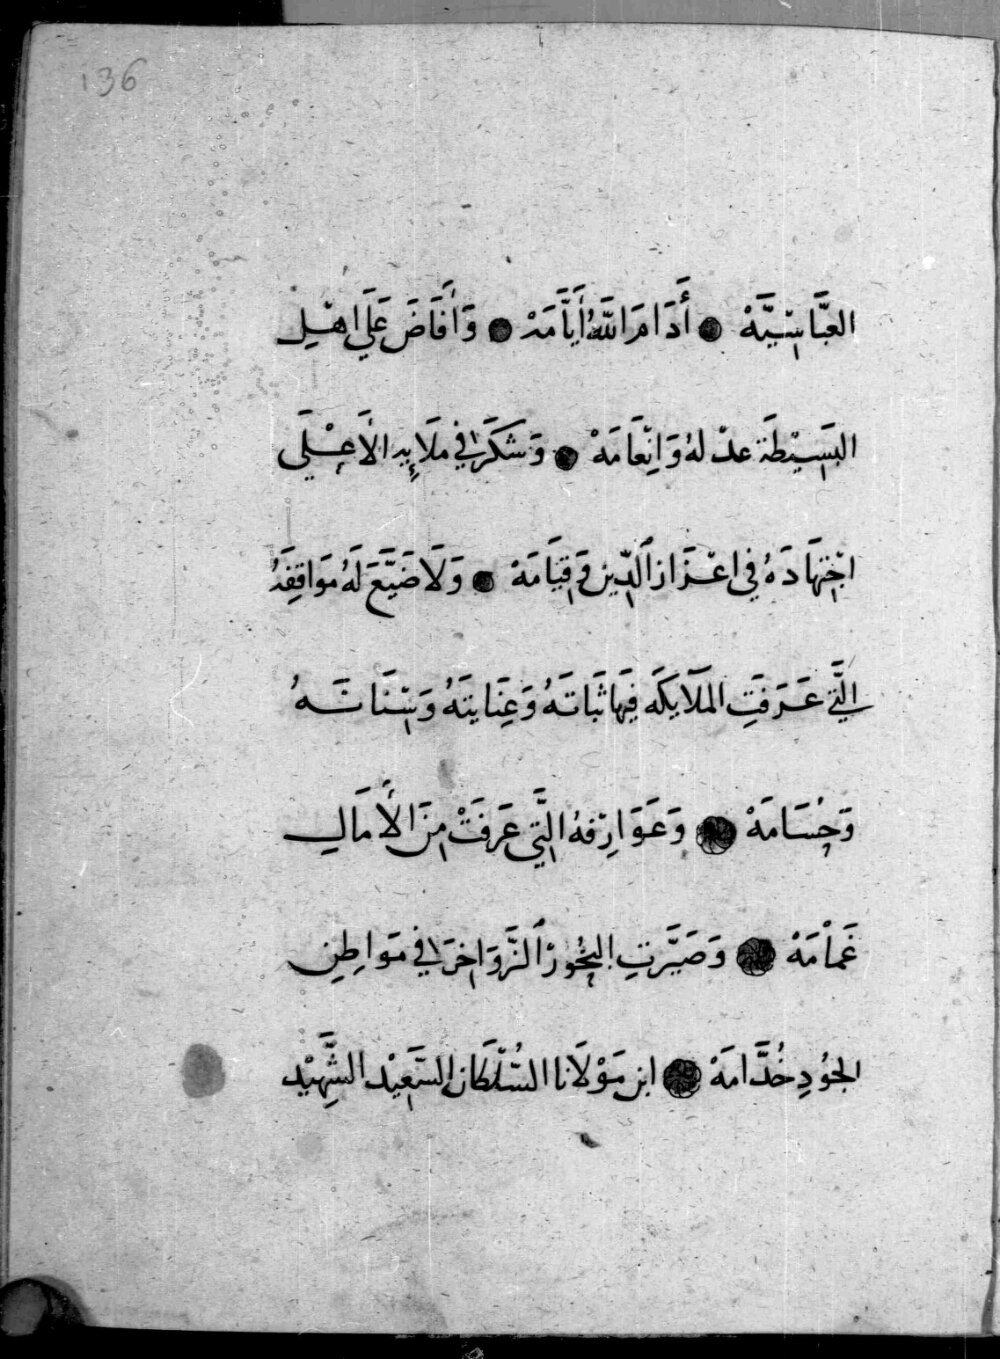 136
العَبَّاسِيَّهْ ● أَدَامَ اللَّهُ أَيَّامَهْ ● وَأَفَاضَ عَلَى اهْلِ
البَسِيْطَةِ عدْلهُ وَانْعَامَهْ ● وَشَكَرَ فِي مَلَإِيهِ الأَعْلَى
اجْتِهَادَهُ فِي اعْزَازِ الدِّينِ وَقِيَامَهْ ● وَلَا ضَيَّعَ لَهُ مَوَاقِفَهُ
الَّتِي عَرَفَتِ المَلَايكَه فِيهَا ثَبَاتَهُ وَعِنَايتَهُ وَسِنَانَهُ
وَحُسَامَهْ ● وَعَوَارِفهُ الَّتِي عَرَفَتْ مِنَ الأَمَالِ
غَمَامَهْ ● وَصَيَّرَتِ البُحُورَ الزَّوَاخِرَ فِي مَوَاطِنِ
الجُوْدِ خُدَّامَهْ ● ابن مَوْلَانا السُّلْطَان السَّعِيْد الشَّهِيْد